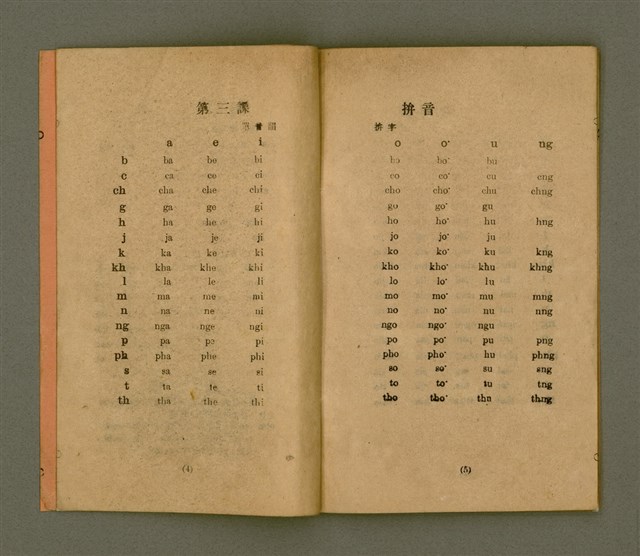 第三課
a e i
b ba be bi
c ca ce ci
ch cha che chi
g ga ge gi
h ha he hi
j ja je ji
k ka ke ki
kh kha khe khi
l la le li
m ma me mi
n na ne ni
ng nga nge ngi
p pa pe pi
ph pha phe phi
s sa se si
t ta te ti
th tha the thi
(4)
拚音
拚字
o o͘ u ng
bo bo͘ bu
co co͘ cu cng
cho cho͘ chu chng
go go͘ gu
ho ho͘ hu hng
jo jo͘ ju
ko ko͘ ku kng
kho kho͘ khu khng
lo lo͘ lu
mo mo͘ mu mng
no no͘ nu nng
ngo ngo͘ ngu
po po͘ pu png
pho pho͘ hu phng
so so͘ su sng
to to͘ tu tng
tho tho͘ thu thng
(5)